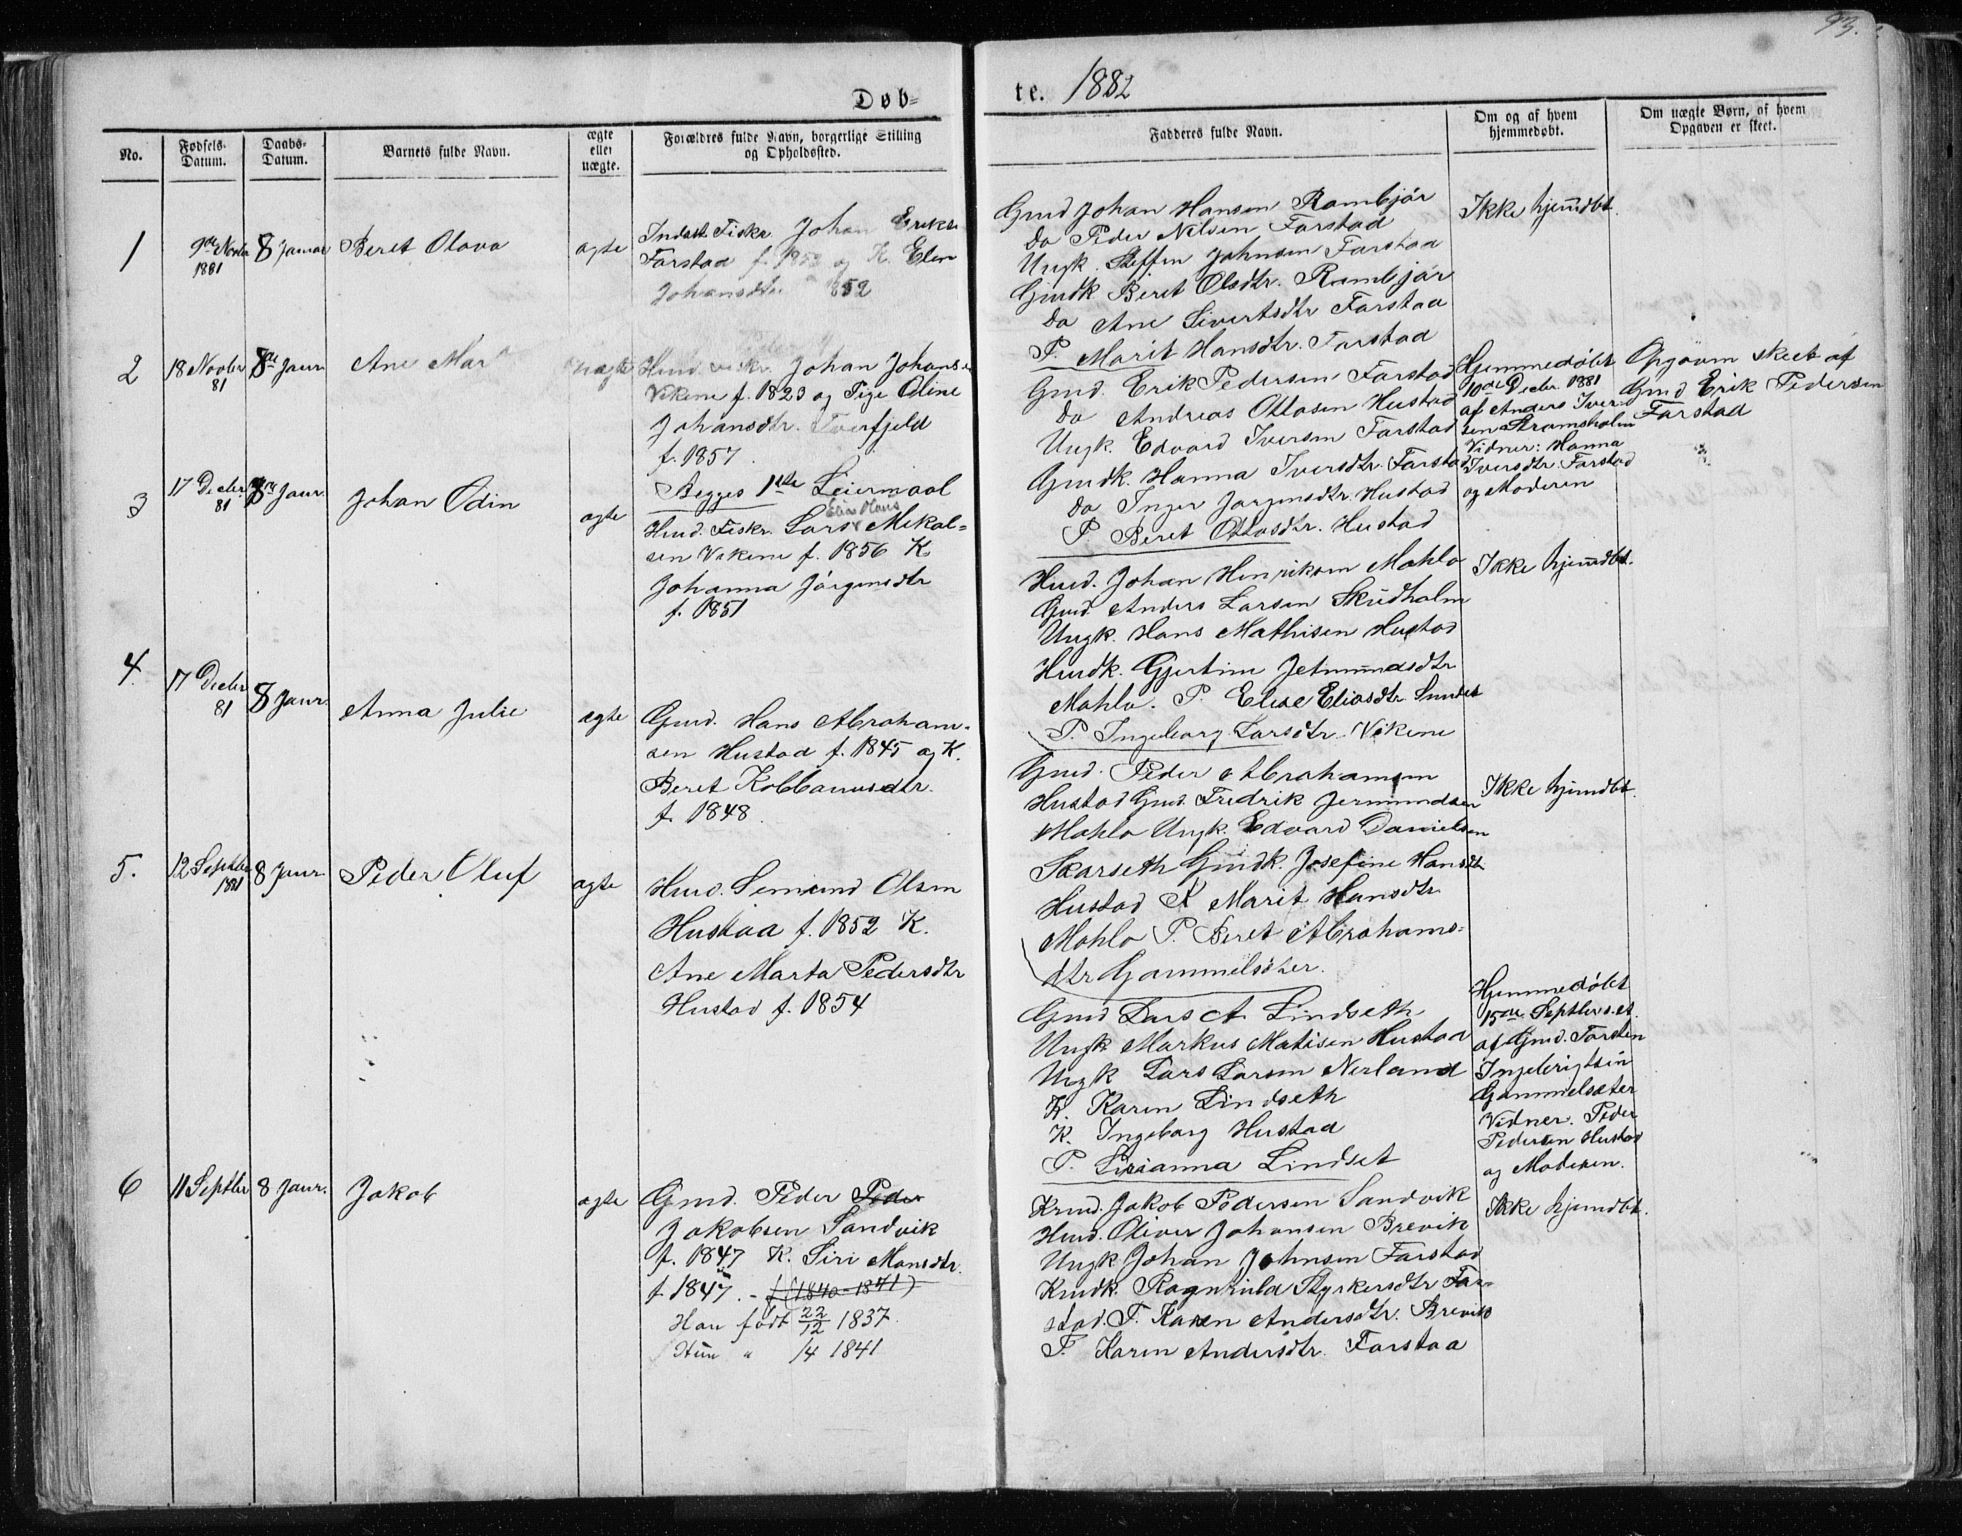 93.
Døb=
te. 1882
No.
Fødsels-
Datum.
Daabs-
Datum.
Barnets fulde Navn.
ægte
eller
uægte.
Forældres fulde Navn, borgerlige Stilling
og Opholdssted.
Fadderes fulde Navn.
Om og af hvem
hjemmedøbt.
Om uægte Børn, af hvem
Opgaven er skeet.
1
9de Novbr
1881
8 Januar
Beret Olava
ægte
Inderst Fiskr Johan Eriks
Farstad f. 1852 og K. Elen
Johansdtr 1852
Gmd Johan Hansen Rambjør
Do Peder Nilsen Farstad
Ungk. Steffen Johnsen Farstad
Gmdk Beret Olsdtr. Rambjør
Do Ane Sivertsdtr Farstad
P. Marit Hansdtr. Farstad
Ikke hjemdbt.
2
18 Novbr
81
8de Janr
Ane Mar
uægte
Husd. Johan Johans
Vikene f. 1823 og Pige Oline
Johansdtr. Tverfjeld
f. 1857
Begges 1ste Leiermaal
Gmd. Erik Pedersen Farstad
Do Andreas Ottosen Hustad
Ungk. Edvard Iversen Farstad
Gmdk. Hanna Iversdtr. Farstad
Do Inger Jørgensdtr. Hustad
P Beret Ottosdtr. Hustad
Hjemmedøbt
10de Decbr. 1881
af Anders Iver-
sen Stromsholm
Vidner: Hanna
Iversdtr. Farstad
og Moderen
Opgaven skeet af
Gmd Erik Pedersen
Farstad
3
17 Decbr
81
8 Janr.
Johan Odin
ægte
Elias Hans
Husd. Fiskr. Lars Mikal=
sen Vikene f. 1856 K.
Johanna Jørgensdtr
f. 1851
Husd. Johan Henriksen Mahlo
Gmd. Anders Larsen Skudholm
Ungk. Hans Mathisen Hustad
Husdk. Gjertine Jetmundsdtr
Mahlo. P. Elise Eliasdtr Sundet
P. Ingeborg Larsdtr. Vikene
Ikke hjemdbt.
4.
17 Decbr
81
8 Janr.
Anna Julie
ægte
Gmd. Hans Abraham-
sen Hustad f. 1845 og K.
Beret Kolbanusdtr.
f. 1848.
Gmd. Peder Abrahamsen
Hustad Gmd. Fredrik Jermundsen
Mahlo Ungk. Edvard Danielsen
Skarseth Gmdk. Josefine Hansdt
Hustad K Marit Hansdtr
Mahlo P. Beret Abrahams=
dtr Gammelsæter.
Ikke hjemdbt.
5.
12 Septbr
1881
8 Janr
Peder Oluf
ægte
Husd. Semund Olsen
Hustad f. 1852 K.
Ane Marta Pedersdtr
Hustad f. 1854
Gmd Lars A. Lindseth
Ungk Markus Matisen Hustad
Ungk Lars Larsen Nerland
K. Karen Lindseth
K. Ingeborg Hustad
P. Lisianna Lindset
Hjemmedøbt
15de Septbr s.a.
af Gmd. Torsten
Ingebrigtsen
Gammelsæter
Vidner. Peder
Pedersen Hustad
og Moderen.
6
11 Septbr
8 Janr.
Jakob
ægte
Gmd. Peder Peder
Jakobsen Sandvik
f. 1847 K. Siri Monsdtr.
f. 1847. - f (1840-1841)
Han født 22/12 1837.
Hun " /4 1841
Kmd. Jakob Pedersen Sandvik
Husd. Oliver Johansen Brevik
Ungk Johan Johnsen Farstad
Kmdk. Ragnhilda Styrkersdtr Far-
stad. P. Karen Andersdtr. Brevik
P. Karen Andersdtr. Farstad
Ikke hjemdbt.